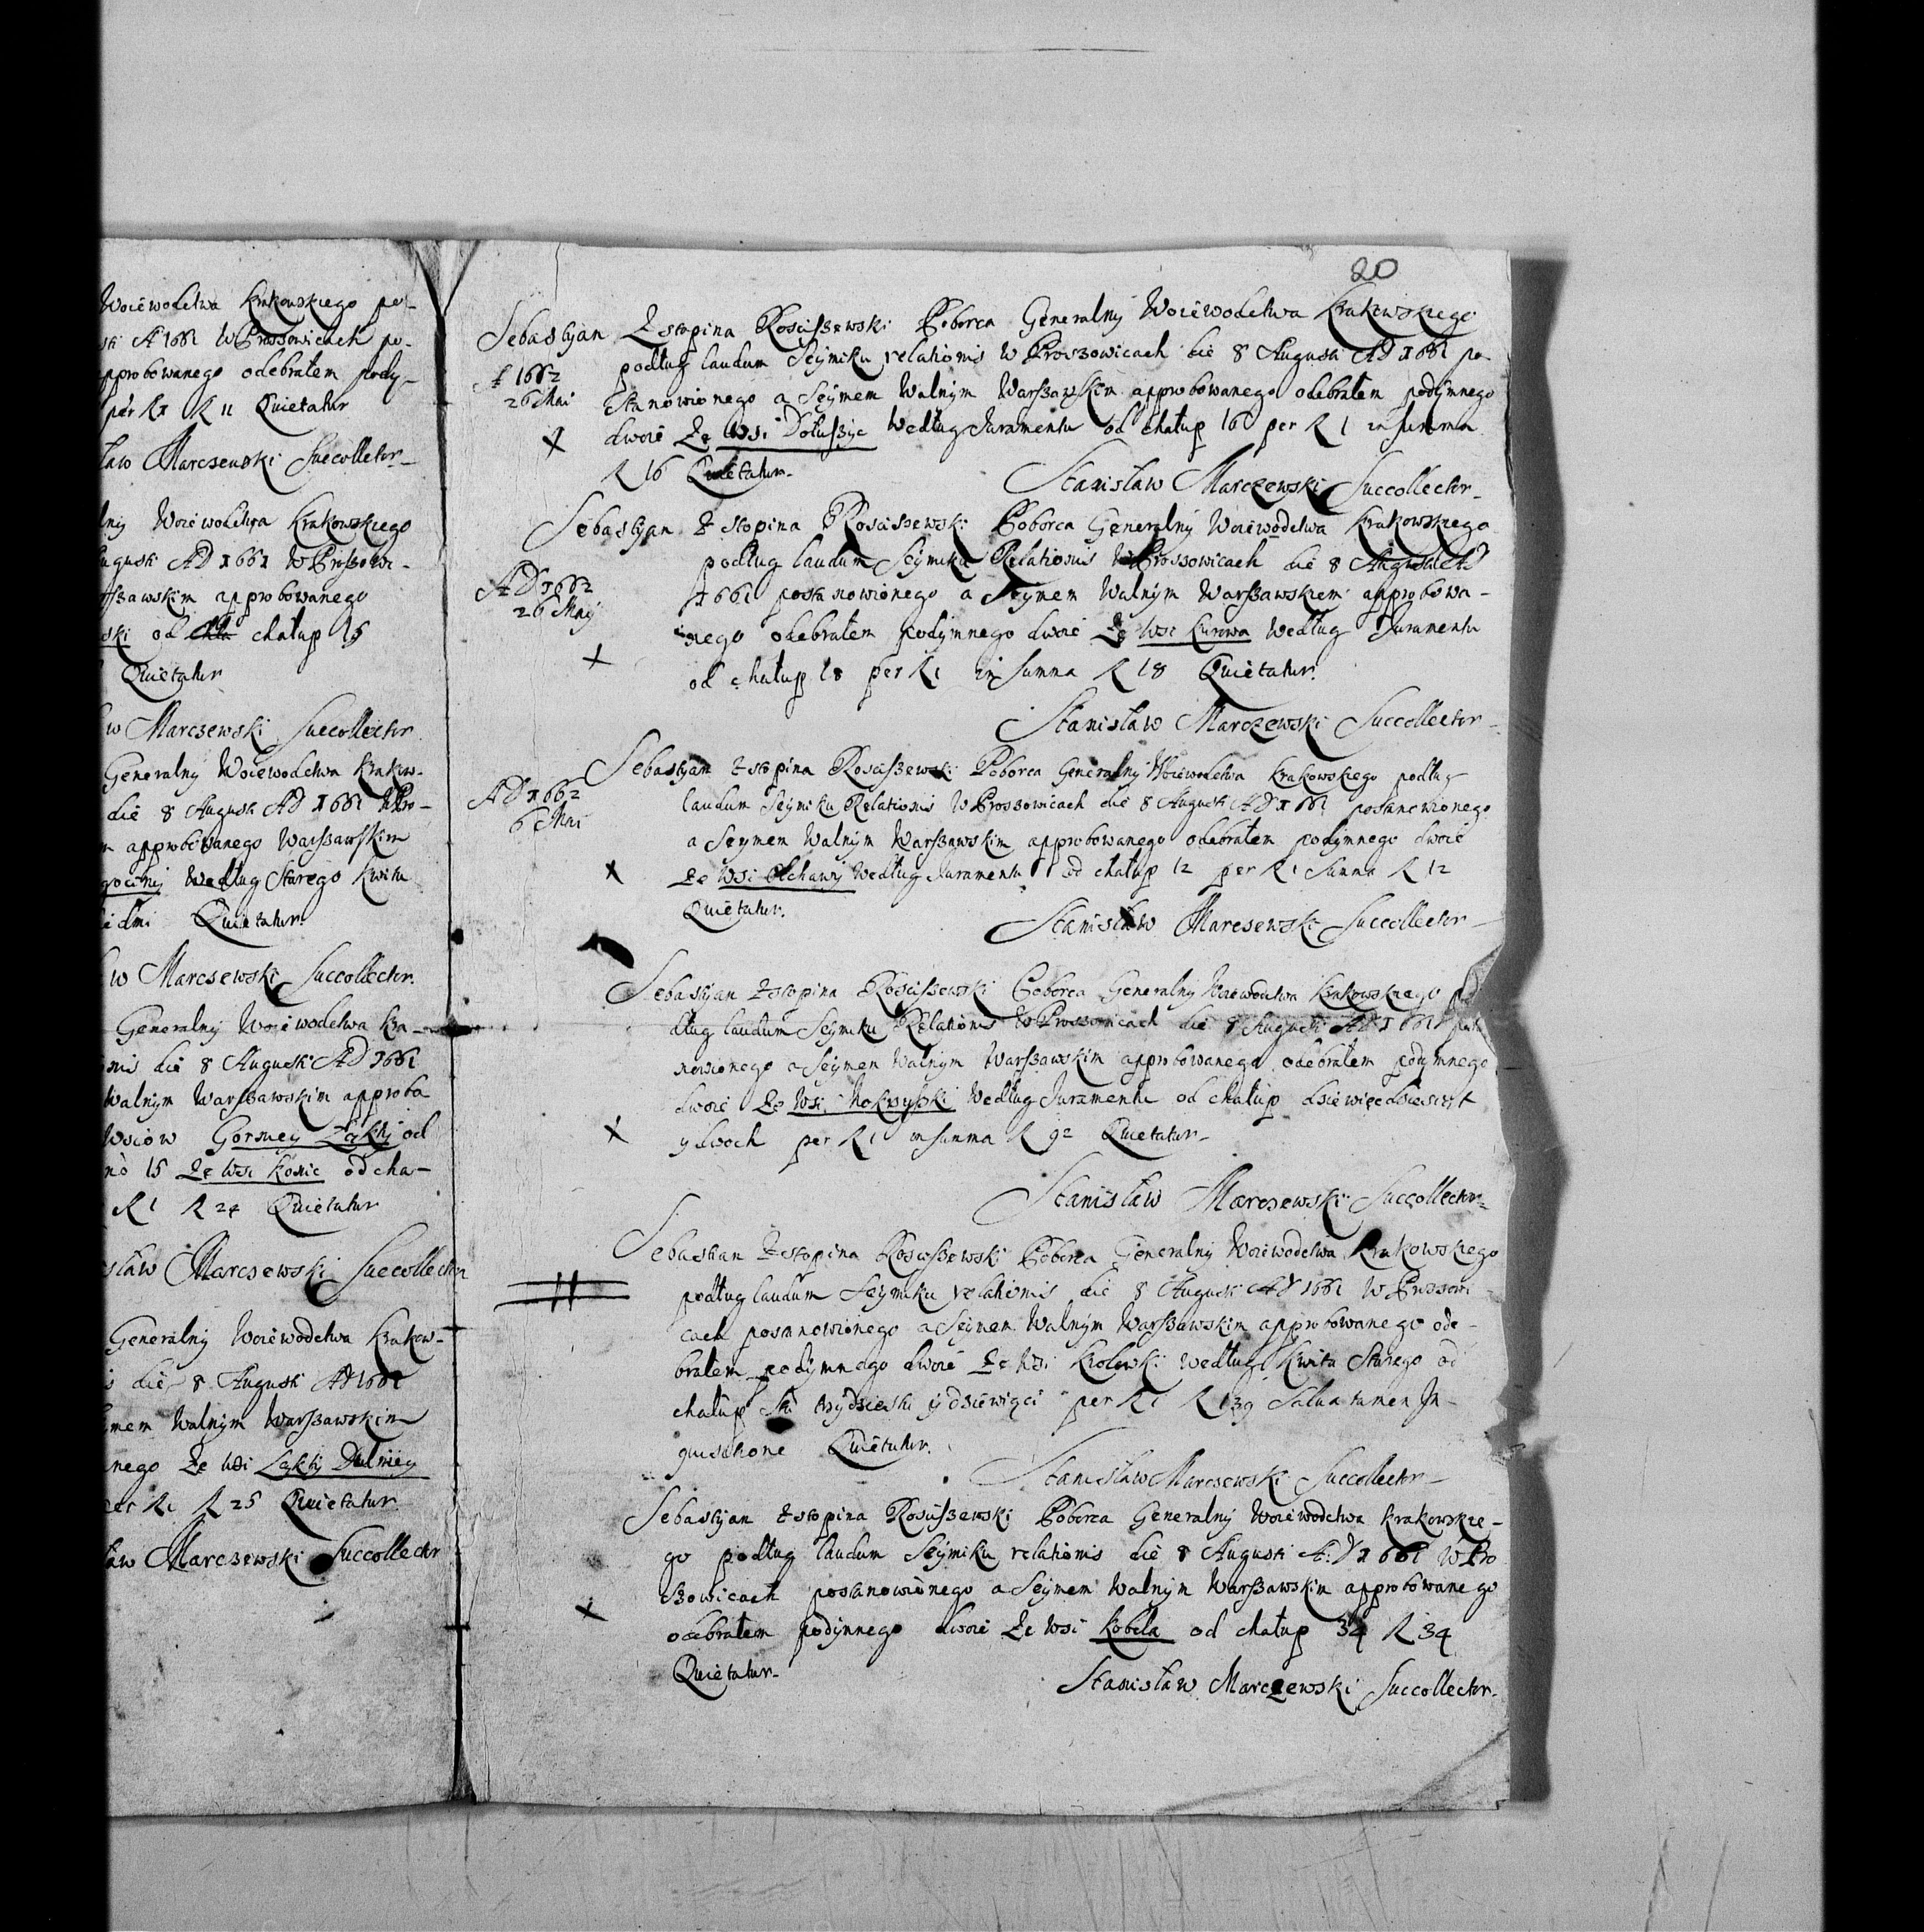 Woiewodctwa Krakowskiego po-
ski A 1661 W Proszowicach po-
approbowanego odebrałem pody-
per R 1 R 11 Quietatur
law Marczewski Succollector
lny Woiewodctwa Krakowskiego
Augusti AD 1661 W Proszowi-
szawskim approbowanego
ski od chałup 15
Quietatur
w Marczewski Succollector
Generalny Woiewodctwa Krakow-
die 8 Augusti AD 1661 W Pro-
m approbowanego Warszawskim
Według Starego Kwitu
Quietatur
w Marczewski Succollector.
Generalny Woiewodctwa Kra-
nis die 8 Augusti AD 1661
Walnym Warszawskim approba
Wsiow Gorney Łąkty od
no 15 Ze Wsi Konic od cha-
R 1 R 24 Quietatur
sław Marczewski Succollector
Generalny Woiewodctwa Krakow-
s die 8 Augusti AD 1661
ymem Walnym Warszawskim
nego Ze Wsi Łąkty Dulniey
per R 1 R 25 Quietatur
aw Marczewski Succollector
20
Sebastyan Zstopina Rosciszewski Poborca Generalny Woiewodctwa Krakowskiego
A 1662 podług laudum Seymiku relationis W Proszowicach die 8 Augusti AD 1661 po
26 Mai stanowionego a Seymem Walnym Warszawskim approbowanego odebrałem podymnego
x dwoie Ze Wsi Dołuszyc Według Juramentu od chałup 16 per R 1 in summa
R 16 Quietatur
Stanisław Marczewski Succollector
Sebastyan Zstopina Rosciszewski Poborca Generalny Woiewodctwa Krakowskiego
podług laudum Seymiku Relationis W Proszowicach die 8 Augusti AD
AD 1662
26 Maij
1661 postanowionego a Seymem Walnym Warszawskiem approbowa-
nego odebrałem podymnego dwoie Ze Wsi Kurowa Według Juramentu
x od chałup 18 per R 1 in summa R 18 Quietatur
Stanisław Marczewski Succollector
Sebastyan Zstopina Rosciszewski Poborca Generalny Woiewodctwa Krakowskiego podług
AD 1662
6 Mai
laudum Seymiku Relationis W Proszowicach die 8 Augusti AD 1661 postanowionego
a Seymem Walnym Warszawskim approbowanego odebrałem podymnego dwoie
x Ze Wsi Olchawy Według Juramentu od chałup 12 per R 1 summa R 12
Quietatur.
Stanisław Marczewski Succollector
Sebastyan Zstopina Rosciszewski Poborca Generalny Woiewodctwa Krakowskiego po
dług laudum Seymiku Relationis W Proszowicach die 8 Augusti AD 1661 posta
nowionego a Seymem Walnym Warszawskim approbowanego odebrałem podymnego
dwoie Ze Wsi Mokrzyski Według Juramentu od chałup dziewięcdziesiąt
x y dwoch per R 1 in summa R 92 Quietatur
Stanisław Marczewski Succollector
Sebastian Zstopina Rosciszewski Poborca Generalny Woiewodctwa Krakowskiego
podług laudum Seymiku relationis die 8 Augusti AD 1661 W Proszowi
cach postanowionego a Seymem Walnym Warszawskim approbowanego ode-
brałem podymnego dwoie Ze Wsi Krolowki Według Kwitu Starego od
chałup sta trzydziestu y dziewiąci per R 1 R 139 Salua tamen In-
quisitione Quietatur.
Stanisław Marczewski Succollector
Sebastyan Zstopina Rosciszewski Poborca Generalny Woiewodctwa Krakowskie-
go podług laudum Seymiku relationis die 8 Augusti A: D 1661 W Pro
szowicach postanowionego a Seymem Walnym Warszawskim approbowanego
x odebrałem podymnego dwoie Ze Wsi Kobela od chałup 34 R 34
Quietatur
Stanisław Marczewski Succollector